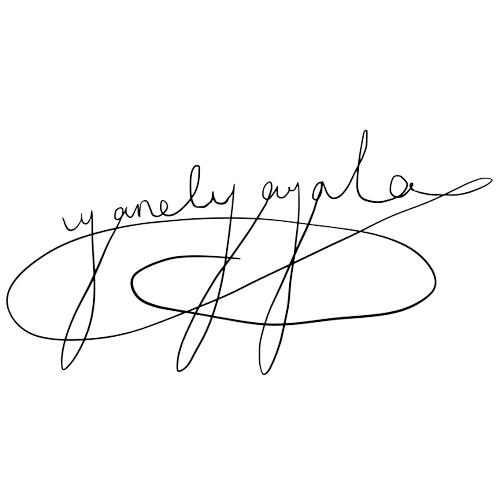 yanely ayala